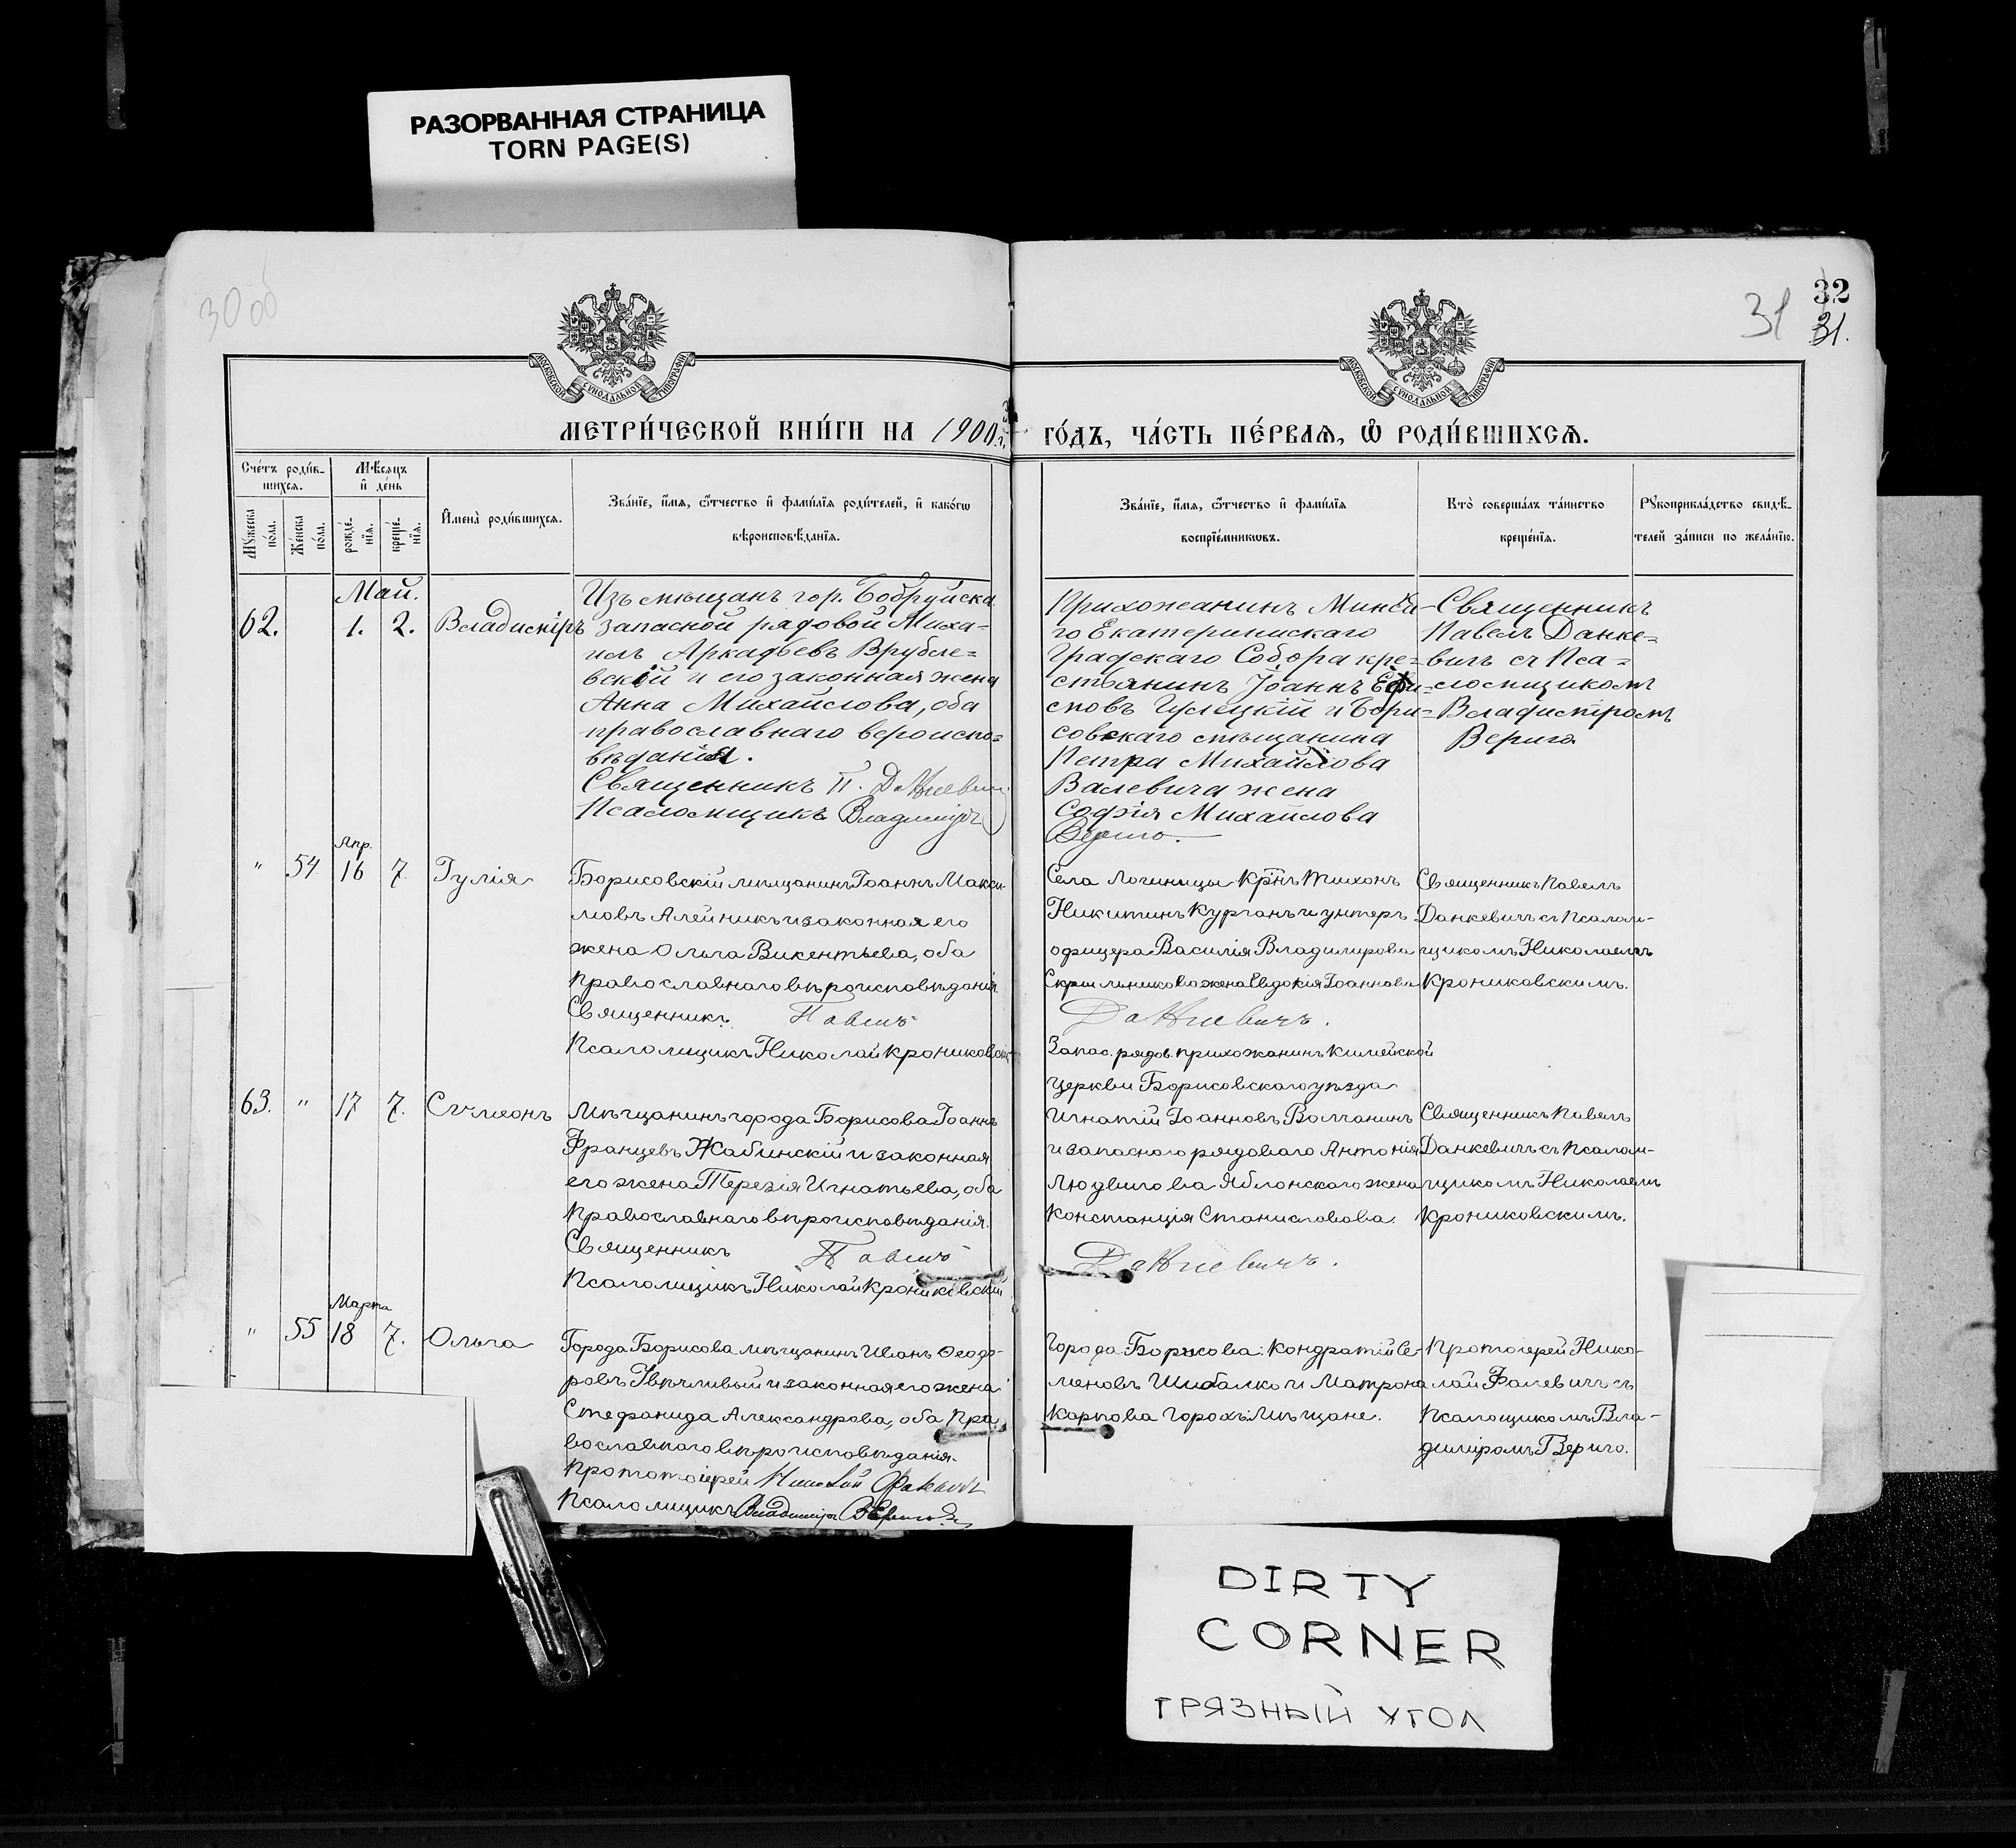 РАЗОРВАННАЯ СТРАНИЦА
TORN PAGE(S)
30 об
31
32
31.
МОСКОВСКОЙ СѴНОДАЛЬНОЙ ТИПОГРАФІИ
МОСКОВСКОЙ СѴНОДАЛЬНОЙ ТИПОГРАФІИ
МЕТРИ́ЧЕСКОЙ КНИ́ГИ НА 1900 г.
ГО́ДЪ, ЧА́СТЬ ПЕ́РВАѦ, Ѽ РОДИ́ВШИХСѦ.
Сче́тъ роди́в-
шихсѧ.
Мѣ́сѧцъ
и҆ де́нь
Мꙋ́жеска по́ла.
Же́нска по́ла.
рожде́-
нїѧ.
креще́-
нїѧ.
И҆мена̀ роди́вшихсѧ.
Зва́нїе, и҆́мѧ, ѻ҆́тчество и҆ фами́лїѧ роди́телей, и҆ како́гѡ
вѣроисповѣ́данїѧ.
Зва́нїе, и҆́мѧ, ѻ҆́тчество и҆ фами́лїѧ
воспрїе́мникѡвъ.
Кто̀ соверша́лъ та́инство
креще́нїѧ.
Рꙋкоприкла́дство свидѣ́-
телей за́писи по жела́нїю.
Май.
62.
1.
2.
Владиміръ
Изъ мѣщанъ гор. Бобруйска
запасной рядовой Миха-
илъ Аркадьевъ Врубле=
вскій и его законная жена
Анна Михайлова, оба
православнаго вероиспо=
вѣданія.
Священникъ П. Данкевич
Псаломщикъ Владиміръ
Прихожанинъ Минска-
го Екатерининскаго
Градскаго Собора кре=
стьянинъ Іоаннъ
Гулецкій и Бори=
совскаго мѣщанина
Петра Михайлова
Валевича жена
Софія Михайлова
Верыго.
Священникъ
Павелъ Данке=
вичъ съ Пса=
ломщикомъ
Владиміромъ
Верыго
"
54.
Апр.
16
7.
Іулія
Борисовскій мѣщанинъ Іоаннъ Макси-
мовъ Алейникъ и законная его
жена Ольга Викентьева, оба
Православнаго вѣроисповѣданія.
Священникъ Павелъ
Псаломщикъ Николай Крониковскій
Села Логиницы Крн Тихонъ
Никитинъ Курганъ и унтеръ
офицера Василія Владимірова
жена Евдокія Іоаннова
Данкевичъ.
Священникъ Павелъ
Данкевичъ съ Псалом-
щикомъ Николаемъ
Крониковскимъ.
63.
"
17
7.
Сѵмеонъ
Мѣщанинъ города Борисова Іоаннъ
Францевъ Жабинскій и законная
его жена Терезія Игнатьева, оба
Православнаго вѣроисповѣданія.
Священникъ Павелъ
Псаломщикъ Николай Крониковскій
Запас. рядов. прихожанинъ Кимейской
церкви Борисовскаго уѣзда
Игнатій Іоанновъ Волчанинъ
и запаснаго рядоваго Антонія
Людвигова Яблонскаго жена
Констанція Станиславова.
Данкевичъ.
Священникъ Павелъ
Данкевичъ съ Псалом-
щикомъ Николаемъ
Крониковскимъ.
"
55
Марта
18
7.
Ольга
Города Борисова мѣщанинъ Иванъ Ѳеодо-
ровъ и законная его жена
Стефанида Александрова, оба Пра-
вославнаго вѣроисповѣданія.
Прототоіерей Николай Фалевичъ
Псаломщикъ Владиміръ Верыго
Города Борисова: Кондратій Се-
меновъ Шибалко и Матрона
Карпова Горохъ. Мѣщане.
Протоіерей Нико-
лай Фалевичъ съ
Псаломщикомъ Вла-
диміромъ Верыго.
DIRTY
CORNER
ГРЯЗНЫЙ УГОЛ